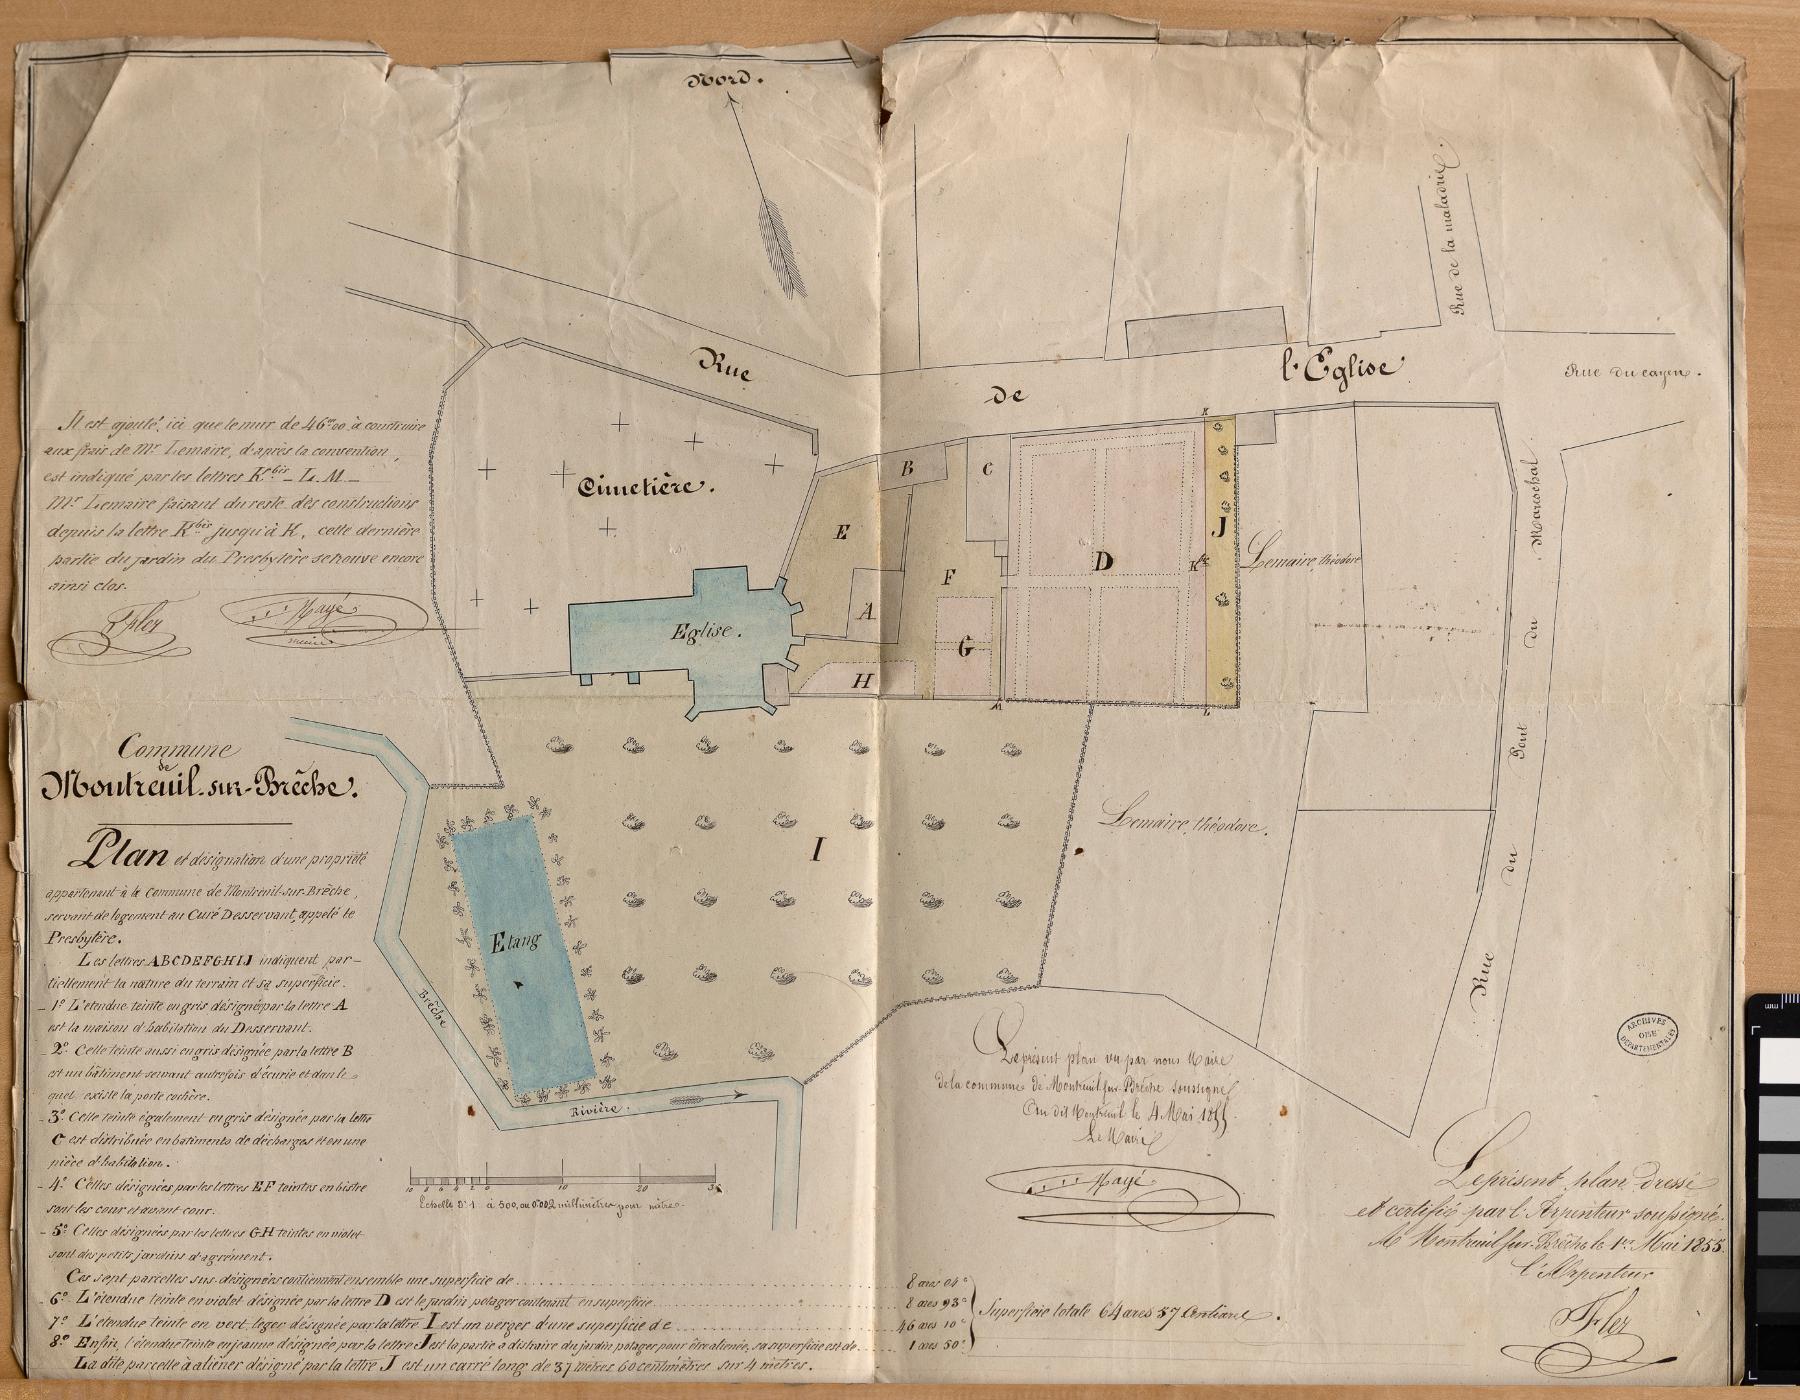 Nord.
Rue de la maladrie.
Rue
de
l'Eglise
Rue du cayen.
Il est ajouté, ici que le mur de 46m00 à construire
aux frais de Mr Lemaire, d'après la convention,
est indiqué par les lettres Kbis _ L. M _
Mr Lemaire faisant du reste des constructions
depuis la lettre Kbis jusqu'à K, cette dernière
partie du jardin du Presbytère se trouve encore
ainsi clos.
Mayé
maire
Cimetière.
Eglise.
A
B
C
D
E
F
G
H
I
J
K
Kbis
L
M
Lemaire, théodore
Lemaire, théodore.
Rue du Pont du Marechal
Commune
de
Montreuil-sur-Brêche.
Plan et désignation d'une propriété
appartenant à la Commune de Montreuil-sur-Brêche,
servant de logement au Curé Desservant, appelé le
Presbytère.
Les lettres ABCDEFGHIJ indiquent par-
tiellement la nature du terrain et sa superficie.
_ 1o L'étendue teinte en gris désigné par la lettre A
est la maison d'habitation du Desservant.
_ 2o Celle teinte aussi en gris désignée par la lettre B
est un bâtiment servant autrefois d'écurie et dans le
quel existe la porte cochère.
_ 3o Celle teinte également en gris désignée par la lettre
C est distribuée en batiments de décharges et en une
pièce d'habitation.
_ 4o Celles désignées par les lettres EF teintes en bistre
sont les cour et avant cour.
_ 5o Celles désignées par les lettres GH teintes en violet
sont des petits jardins d'agrément.
Ces sept parcelles sus-désignées contiennent ensemble une superficie de ........ 8 ares 04c
_ 6o L'étendue teinte en violet désignée par la lettre D est le jardin potager contenant en superficie ........ 8 ares 93c
_ 7o L'étendue teinte en vert leger désignée par la lettre I est un verger d'une superficie de ........ 46 ares 10c
_ 8o Enfin, l'étendue teinte en jeaune désignée par la lettre J est la partie a distraire du jardin potager pour être alienée, sa superficie est de ..... 1 ares 50c
La dite parcelle à aliéner désigné par la lettre J est un carré long de 37 mètres 60 centimètres sur 4 mètres.
Superficie totale 64 ares 57 Centiare.
Etang
Brêche
Rivière.
10 8 6 4 2 0 10 20 30
Echelle d. 1 à 500, ou 0m002 millimètres pour mètre.
Le présent plan vu par nous Maire
de la commune de Montreuil-sur-Brêche soussigné
Au dit Montreuil le 4 Mai 1855.
Le Maire
Mayé
Le présent plan dressé
et certifié par l'Arpenteur soussigné.
A Montreuil-sur-Brêche le 1er Mai 1855.
l'Arpenteur
ARCHIVES
OISE
DÉPARTEMENTALES